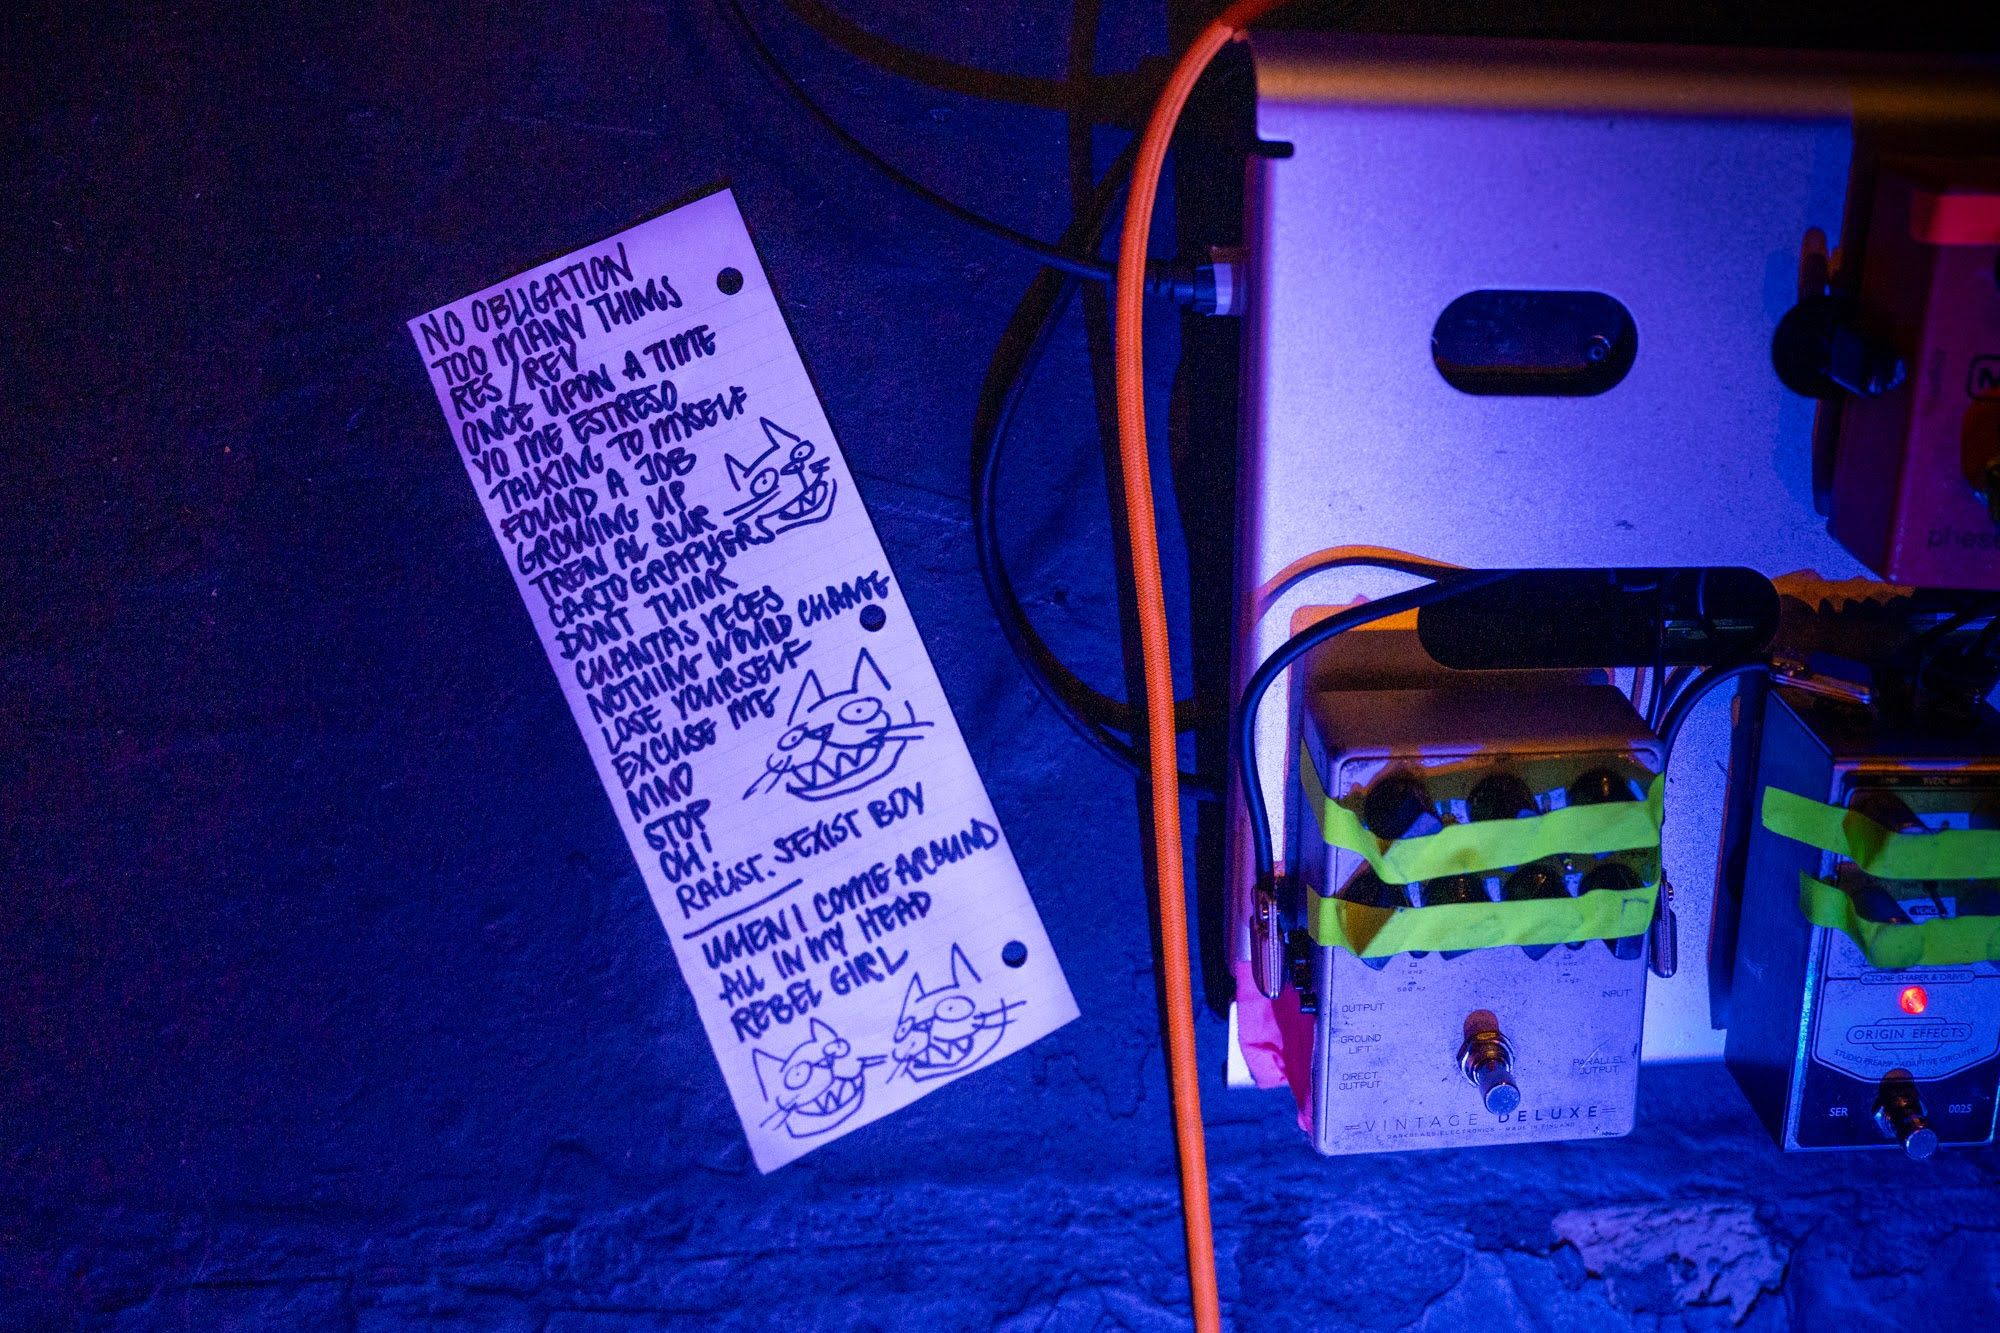 NO OBLIGATION
TOO MANY THINGS
RES/REV
ONCE UPON A TIME
YO ME ESTRESO
TALKING TO MYSELF
FOUND A JOB
GROWING UP
TREN AL SUR
CARTOGRAPHERS
DONT THINK
CUANTAS VECES
NOTHING WOULD CHANGE
LOSE YOURSELF
EXCUSE ME
NINO
STOP
OH!
RACIST. SEXIST BOY
WHEN I COME AROUND
ALL IN MY HEAD
REBEL GIRL
phase
500 HZ
OUTPUT
INPUT
GROUND
LIFT
DIRECT
OUTPUT
PARALLEL
OUTPUT
VINTAGE DELUXE
DARKGLASS ELECTRONICS - MADE IN FINLAND
9VDC
TONE SHAPER & DRIVE
ORIGIN EFFECTS
STUDIO PREAMP ADAPTIVE CIRCUITRY
SER 0025